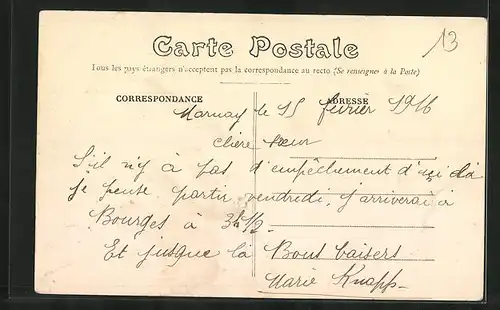 13
Carte Postale
Tous les pays étrangers n'acceptent pas la correspondance au recto (Se renseigner à la Poste)
CORRESPONDANCE
ADRESSE
Marnay le 15 février 1916
chère sœur
S'il n'y à pas d'empêchement d'ici là
je pense partir vendredi, j'arriverai à
Bourges à 3h 1/2.
Et jusque là Bons baisers
Marie Knapp